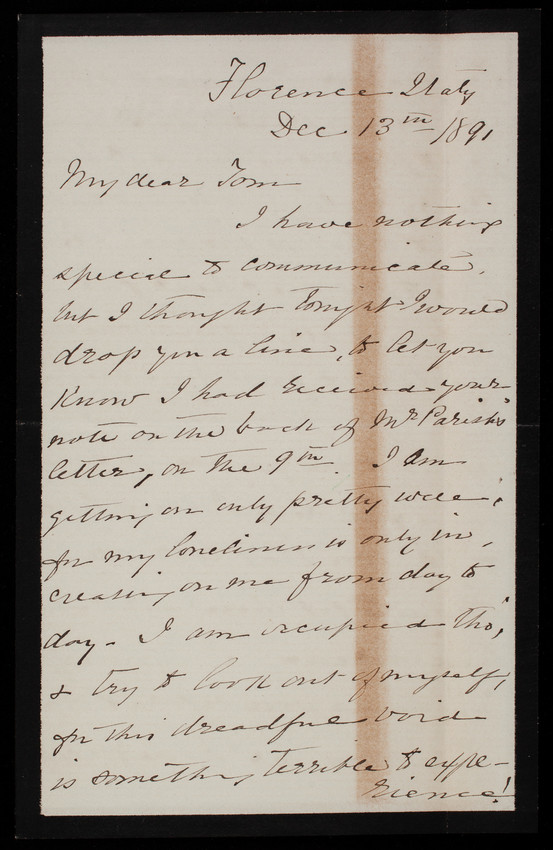 Florence Italy
Dec 13th 1891
My dear Tom
I have nothing
special to communicate,
but I thought tonight I would
drop you a line, to let you
know I had received your
note on the back of Mr Parish's
letter, on the 9th. I am
getting on only pretty well,
for my loneliness is only in,
creasing on me from day to
day. I am occupied tho',
& try to look out of myself,
for this dreadful void
is something terrible to expe-
rience!